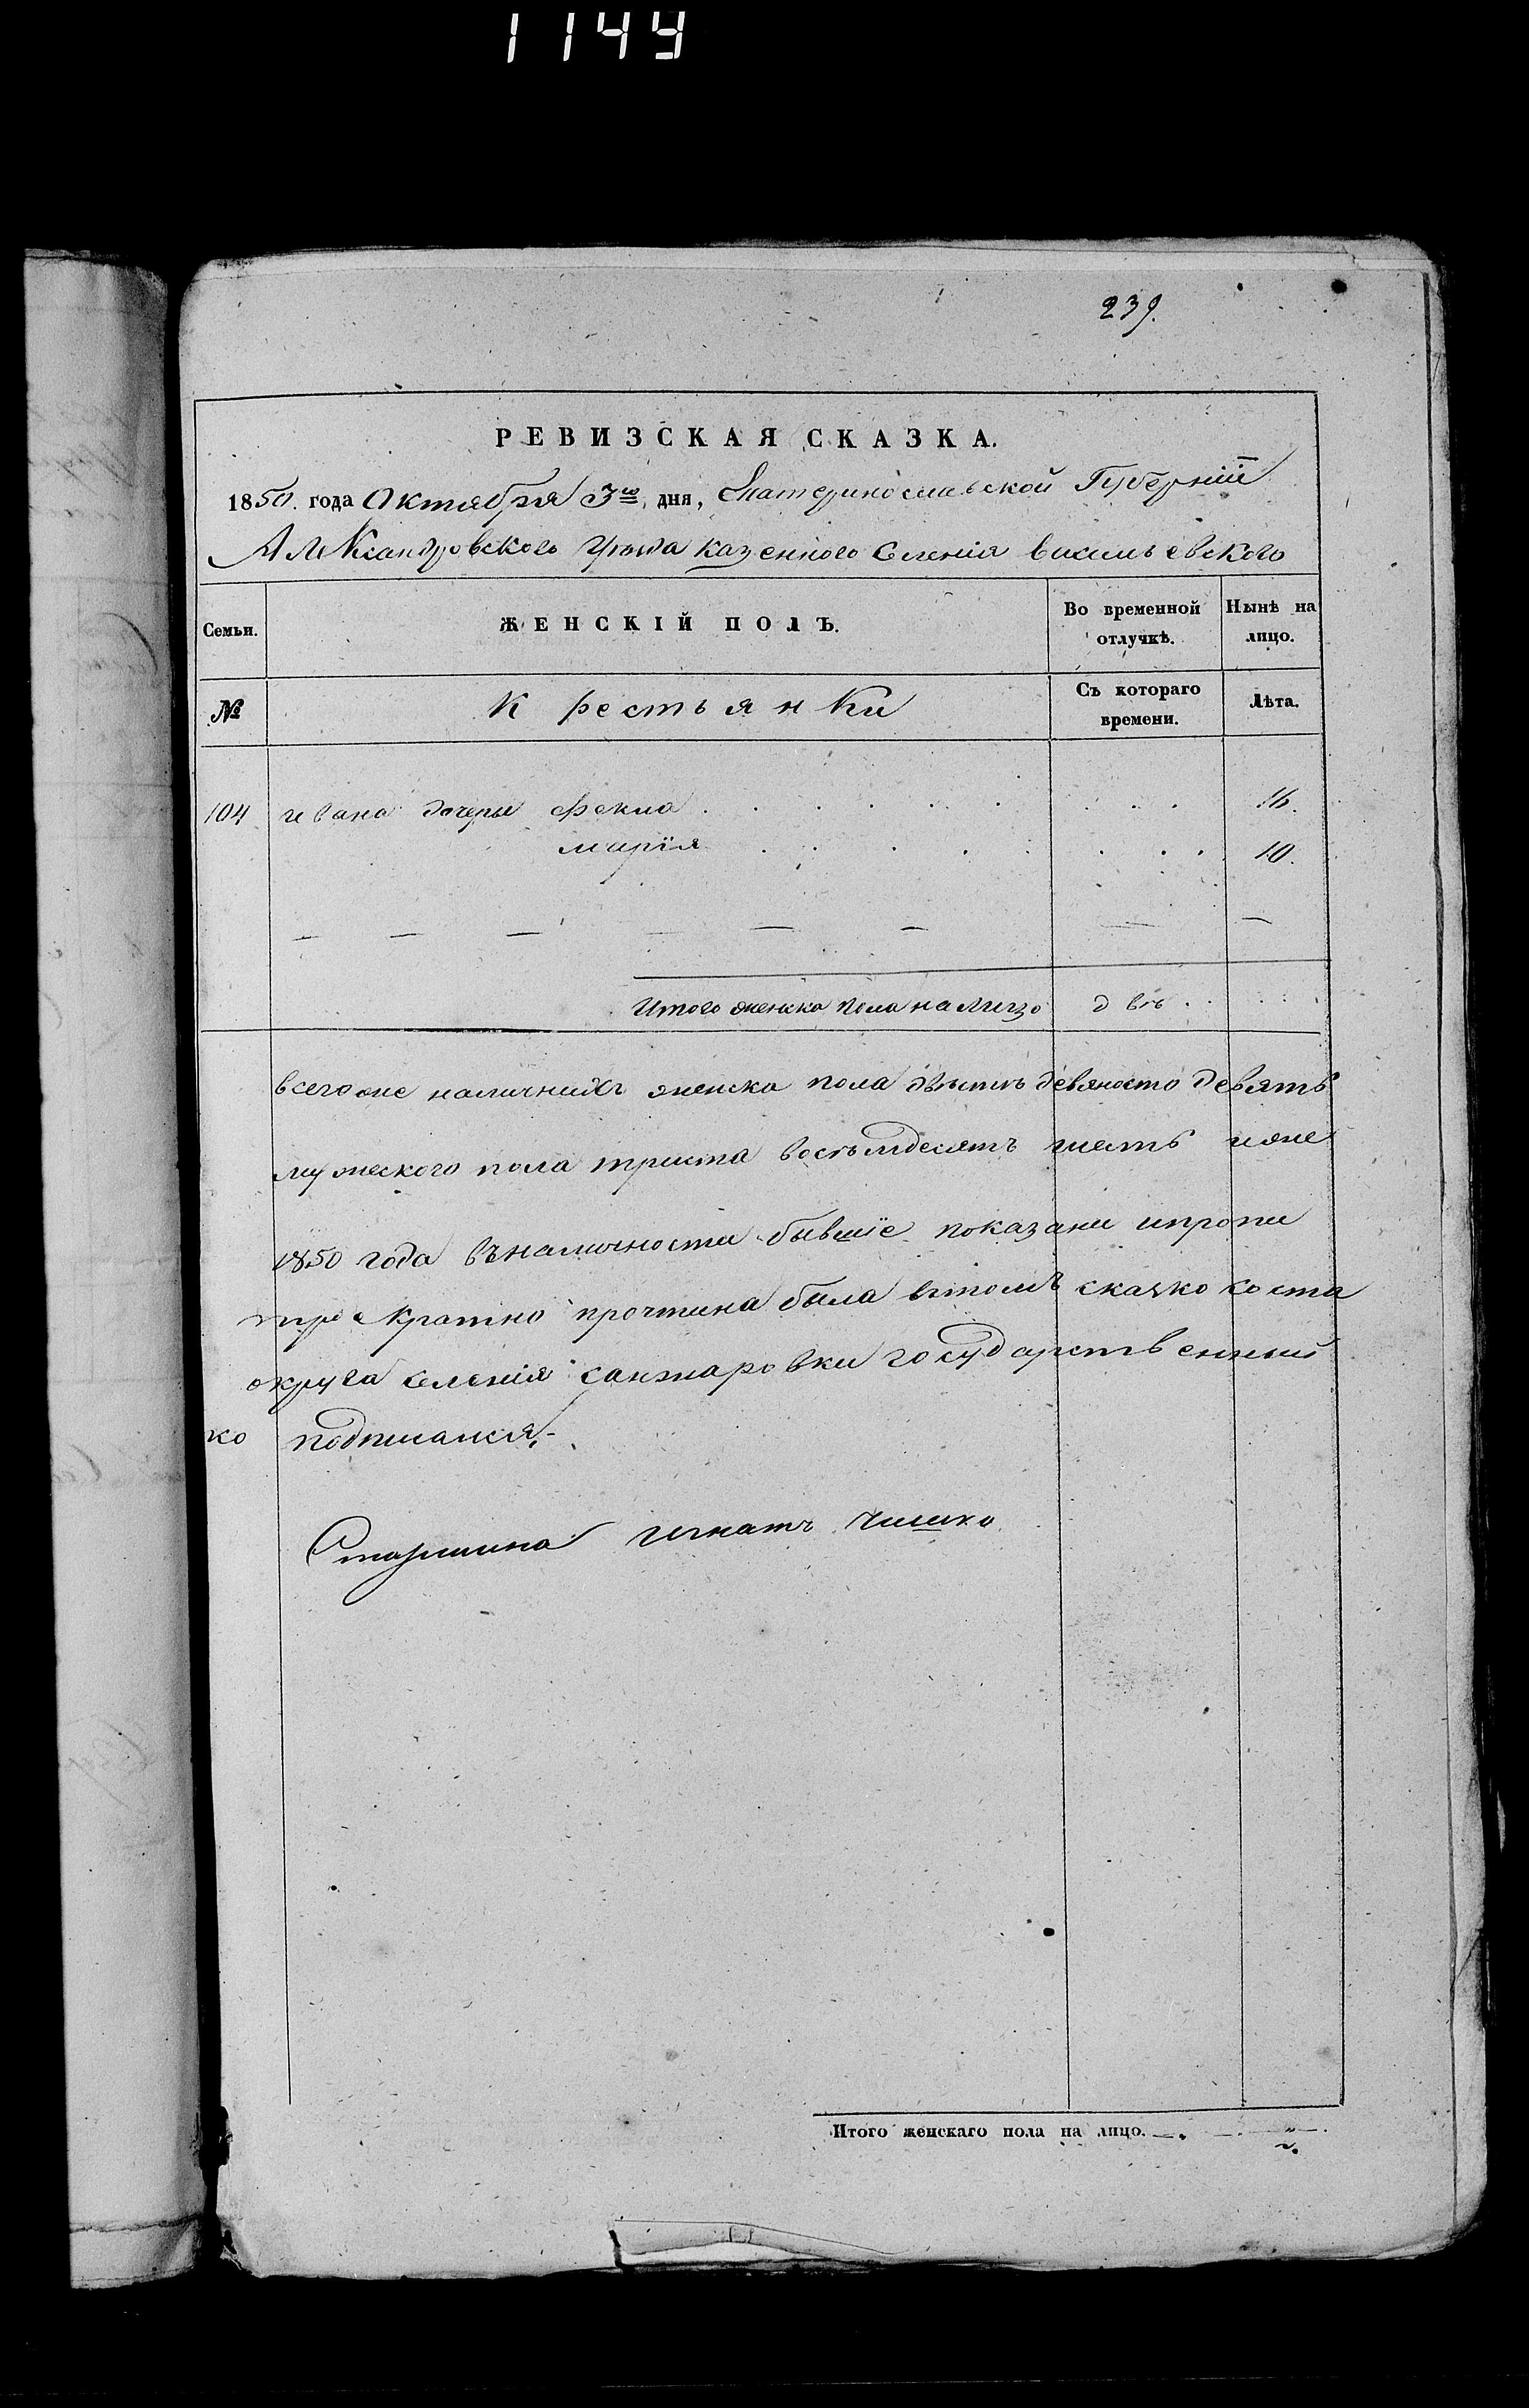 1149
239.
РЕВИЗСКАЯ СКАЗКА.
1850. года Октября 3го дня, Екатеринославской Губерніи
Александровского уъзда казенного Селенія васильевского
Семьи. ЖЕНСКІЙ ПОЛЪ. Во временной отлучкѣ. Нынѣ на лицо.
№ Крестьянки Съ котораго времени. Лѣта.
104 ивана дочери Фекла . . . . . . 16.
марїя . . . . . . 10.
Итого женска пола на лицо двѣ . .
всего же наличнихъ женска пола двѣстѣ девяносто девять
мужеского пола триста восъмдесятъ шесть
1850 года въналичности бывшїе показани ипропи
троекратно прочтина была вътомъ
округа селенія санжаровки государственный
ко подписался,-
Старшина игнатъ чишко
Итого женскаго пола на лицо.